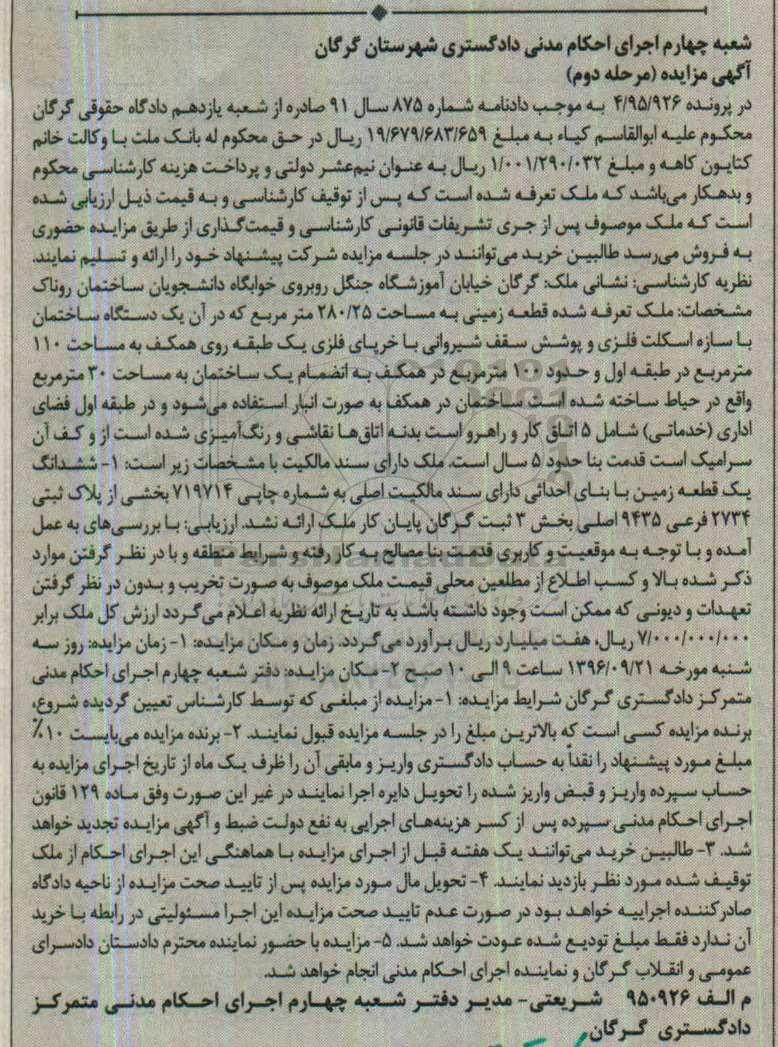 شعبه چهارم اجرای احکام مدنی دادگستری شهرستان گرگان
آگهی مزایده (مرحله دوم)
در پرونده ۴/۹۵/۹۲۶ به موجب دادنامه شماره ۸۷۵ سال ۹۱ صادره از شعبه یازدهم دادگاه حقوقی گرگان
محکوم علیه ابوالقاسم کیاء به مبلغ ۱۹/۶۷۹/۶۸۳/۶۵۹ ریال در حق محکوم له بانک ملت با وکالت خانم
کتایون کاهه و مبلغ ۱/۰۰۱/۲۹۰/۰۳۲ ریال به عنوان نیم‌عشر دولتی و پرداخت هزینه کارشناسی محکوم
و بدهکار می‌باشد که ملک تعرفه شده است که پس از توقیف کارشناسی و به قیمت ذیل ارزیابی شده
است که ملک موصوف پس از جری تشریفات قانونی کارشناسی و قیمت‌گذاری از طریق مزایده حضوری
به فروش می‌رسد طالبین خرید می‌توانند در جلسه مزایده شرکت پیشنهاد خود را ارائه و تسلیم نمایند.
نظریه کارشناسی: نشانی ملک: گرگان خیابان آموزشگاه جنگل روبروی خوابگاه دانشجویان ساختمان روناک
مشخصات: ملک تعرفه شده قطعه زمینی به مساحت ۲۸۰/۲۵ متر مربع که در آن یک دستگاه ساختمان
با سازه اسکلت فلزی و پوشش سقف شیروانی با خرپای فلزی یک طبقه روی همکف به مساحت ۱۱۰
مترمربع در طبقه اول و حدود ۱۰۰ مترمربع در همکف به انضمام یک ساختمان به مساحت ۳۰ مترمربع
واقع در حیاط ساخته شده است ساختمان در همکف به صورت انبار استفاده می‌شود و در طبقه اول فضای
اداری (خدماتی) شامل ۵ اتاق کار و راهرو است بدنه اتاق‌ها نقاشی و رنگ‌آمیزی شده است از و کف آن
سرامیک است قدمت بنا حدود ۵ سال است. ملک دارای سند مالکیت با مشخصات زیر است: ۱- ششدانگ
یک قطعه زمین با بنای احداثی دارای سند مالکیت اصلی به شماره چاپی ۷۱۹۷۱۴ بخشی از پلاک ثبتی
۲۷۳۴ فرعی ۹۴۳۵ اصلی بخش ۳ ثبت گرگان پایان کار ملک ارائه نشد. ارزیابی: با بررسی‌های به عمل
آمده و با توجه به موقعیت و کاربری قدمت بنا مصالح به کار رفته و شرایط منطقه و با در نظر گرفتن موارد
ذکر شده بالا و کسب اطلاع از مطلعین محلی قیمت ملک موصوف به صورت تخریب و بدون در نظر گرفتن
تعهدات و دیونی که ممکن است وجود داشته باشد به تاریخ ارائه نظریه اعلام می‌گردد ارزش کل ملک برابر
۷/۰۰۰/۰۰۰/۰۰۰ ریال، هفت میلیارد ریال برآورد می‌گردد. زمان و مکان مزایده: ۱- زمان مزایده: روز سه
شنبه مورخه ۱۳۹۶/۰۹/۲۱ ساعت ۹ الی ۱۰ صبح ۲- مکان مزایده: دفتر شعبه چهارم اجرای احکام مدنی
متمرکز دادگستری گرگان شرایط مزایده: ۱- مزایده از مبلغی که توسط کارشناس تعیین گردیده شروع،
برنده مزایده کسی است که بالاترین مبلغ را در جلسه مزایده قبول نمایند. ۲- برنده مزایده می‌بایست ۱۰٪
مبلغ مورد پیشنهاد را نقداً به حساب دادگستری واریز و مابقی آن را ظرف یک ماه از تاریخ اجرای مزایده به
حساب سپرده واریز و قبض واریز شده را تحویل دایره اجرا نمایند در غیر این صورت وفق ماده ۱۲۹ قانون
اجرای احکام مدنی سپرده پس از کسر هزینه‌های اجرایی به نفع دولت ضبط و آگهی مزایده تجدید خواهد
شد. ۳- طالبین خرید می‌توانند یک هفته قبل از اجرای مزایده با هماهنگی این اجرای احکام از ملک
توقیف شده مورد نظر بازدید نمایند. ۴- تحویل مال مورد مزایده پس از تایید صحت مزایده از ناحیه دادگاه
صادرکننده اجراییه خواهد بود در صورت عدم تایید صحت مزایده این اجرا مسئولیتی در رابطه با خرید
آن ندارد فقط مبلغ تودیع شده عودت خواهد شد. ۵- مزایده با حضور نماینده محترم دادستان دادسرای
عمومی و انقلاب گرگان و نماینده اجرای احکام مدنی انجام خواهد شد.
م الف ۹۵۰۹۲۶ شریعتی- مدیر دفتر شعبه چهارم اجرای احکام مدنی متمرکز
دادگستری گرگان